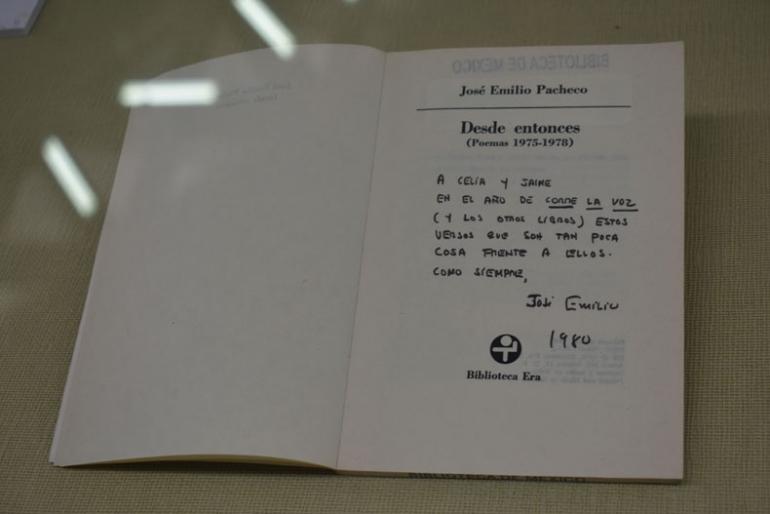 BIBLIOTECA DE MEXICO
José Emilio Pacheco
Desde entonces
(Poemas 1975-1978)
A CELIA Y JAIME
EN EL AÑO DE CORRE LA VOZ
(Y LOS OTROS LIBROS) ESTOS
VERSOS QUE SON TAN POCA
COSA FRENTE A ELLOS.
COMO SIEMPRE,
José Emilio
1980
Biblioteca Era
BIBLIOTECA DE MEXICO